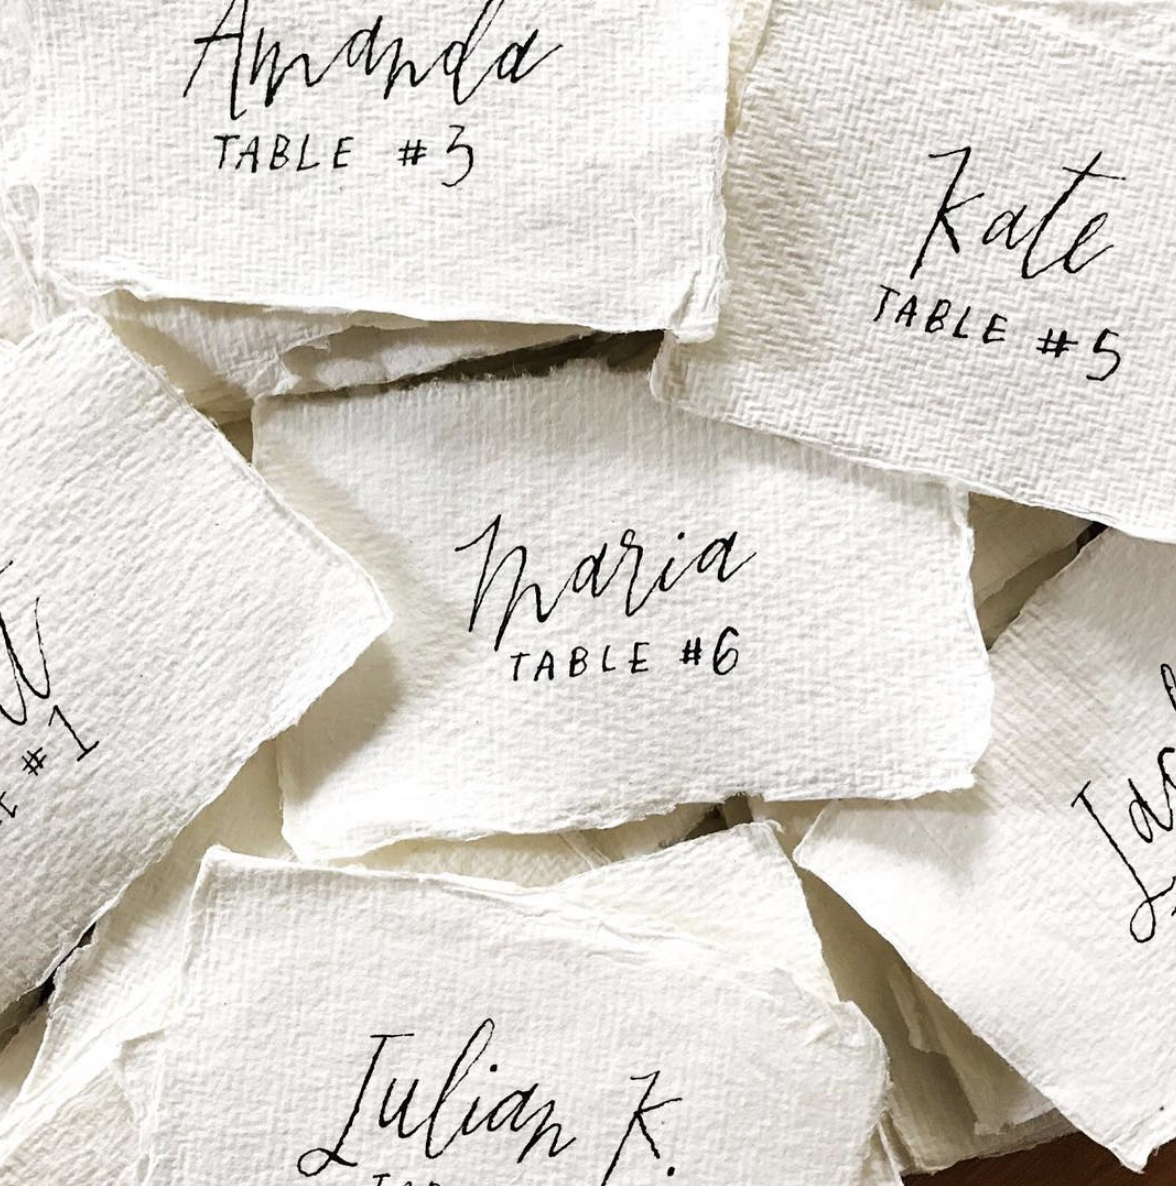 Amanda
TABLE #3
Kate
TABLE #5
Maria
TABLE #6
#1
Julian K.